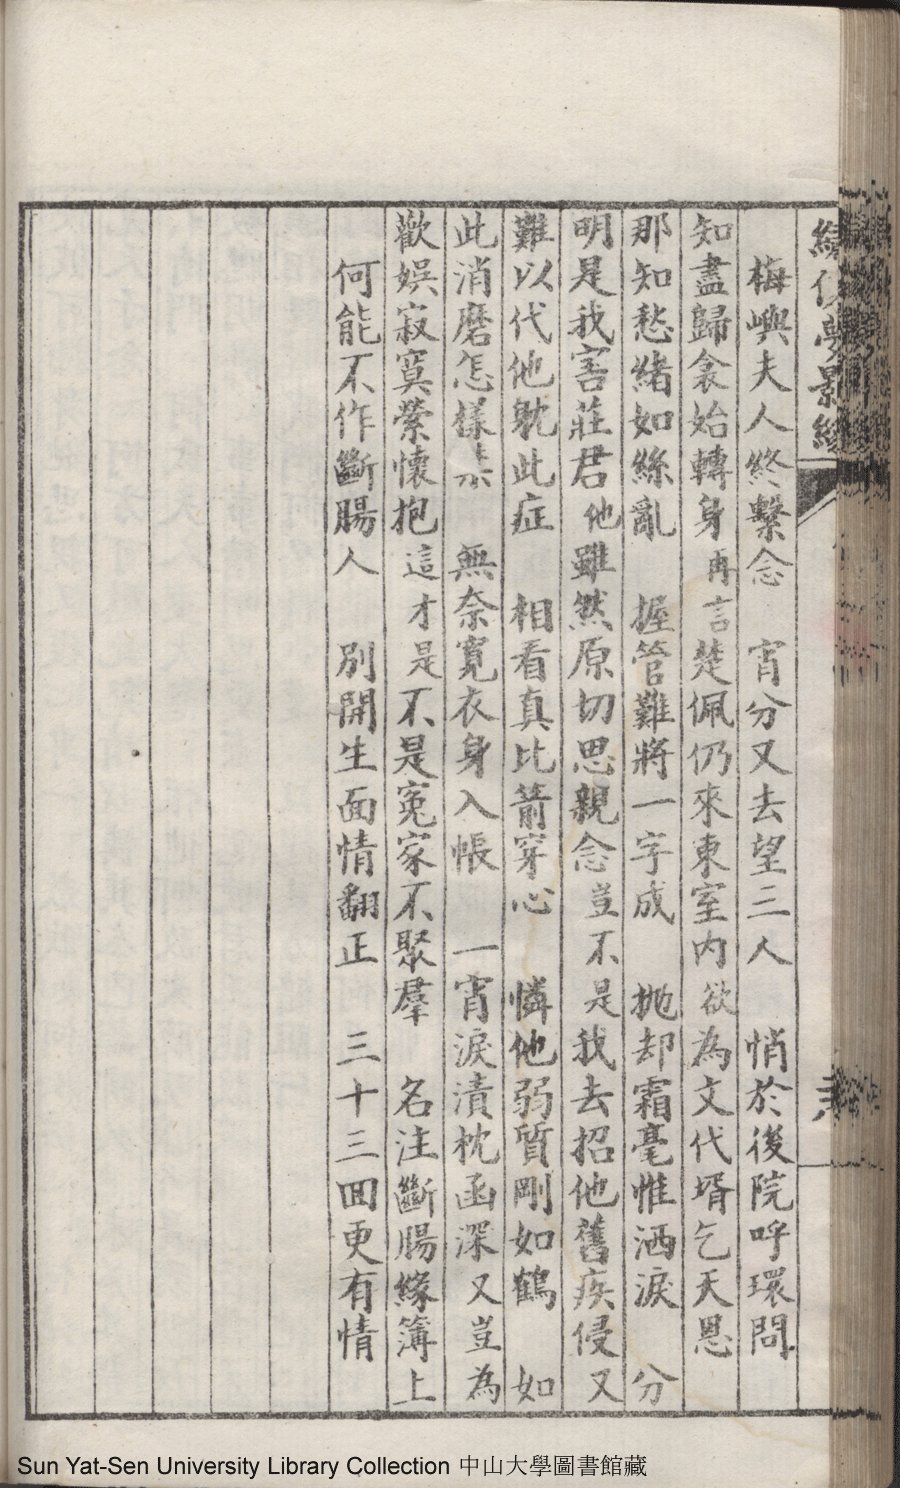 梅嶼夫人終繫念　宵分又去望三人　悄於後院呼環問
知盡歸衾始轉身再言楚佩仍來東室內欲為文代壻乞天恩
那知愁緒如絲亂　握管難將一字成　拋却霜毫惟洒淚　分
明是我害莊君他雖然原切思親念豈不是我去招他舊疾侵又
難以代他躭此症　相看真比箭穿心　憐他弱質剛如鶴　如
此消磨怎樣禁　無奈寬衣身入帳　一宵淚漬枕函深又豈為
歡娛寂寞縈懷抱這才是不是寃家不聚羣　名注斷腸緣簿上
何能不作斷腸人　別開生面情翻正　三十三回更有情
Sun Yat-Sen University Library Collection 中山大學圖書館藏